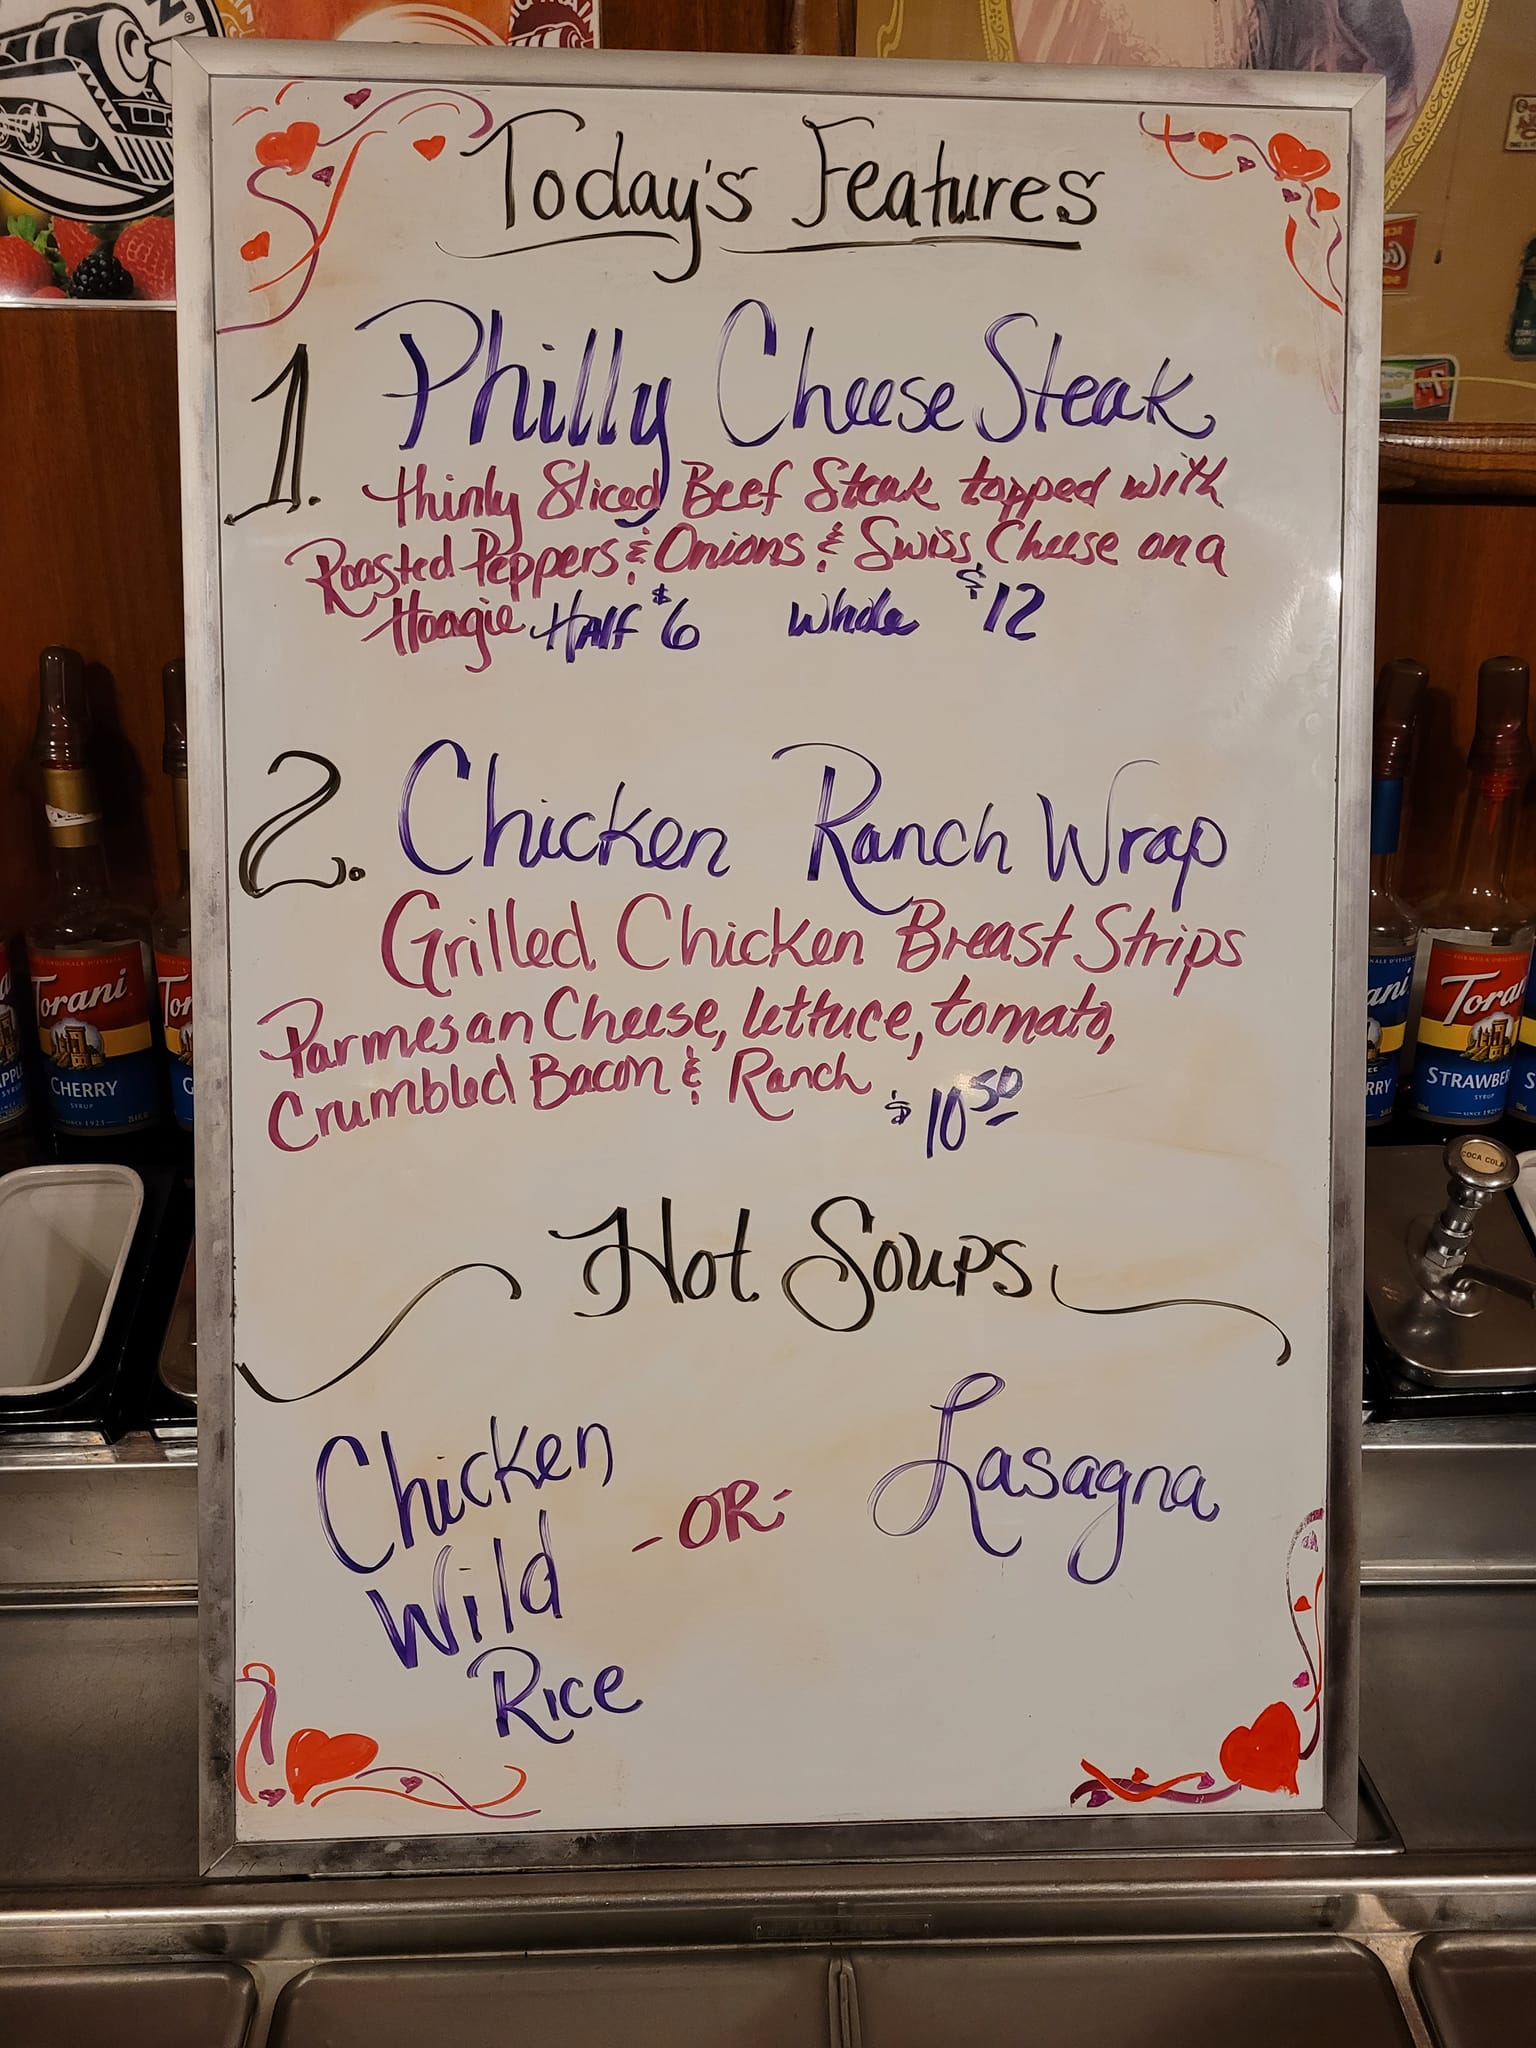 Today's Features
1. Philly Cheese Steak
thinly Sliced Beef Steak topped with
Roasted Peppers & Onions & Swiss Cheese on a
Hoagie Half $6 Whole $12
2. Chicken Ranch Wrap
Grilled Chicken Breast Strips
Parmesan Cheese, lettuce, tomato,
Crumbled Bacon & Ranch $10 50
Hot Soups
Chicken
Wild
Rice
-OR-
Lasagna
Torani
CHERRY
SYRUP
Torani
STRAWBE
SYRUP
COCA COLA